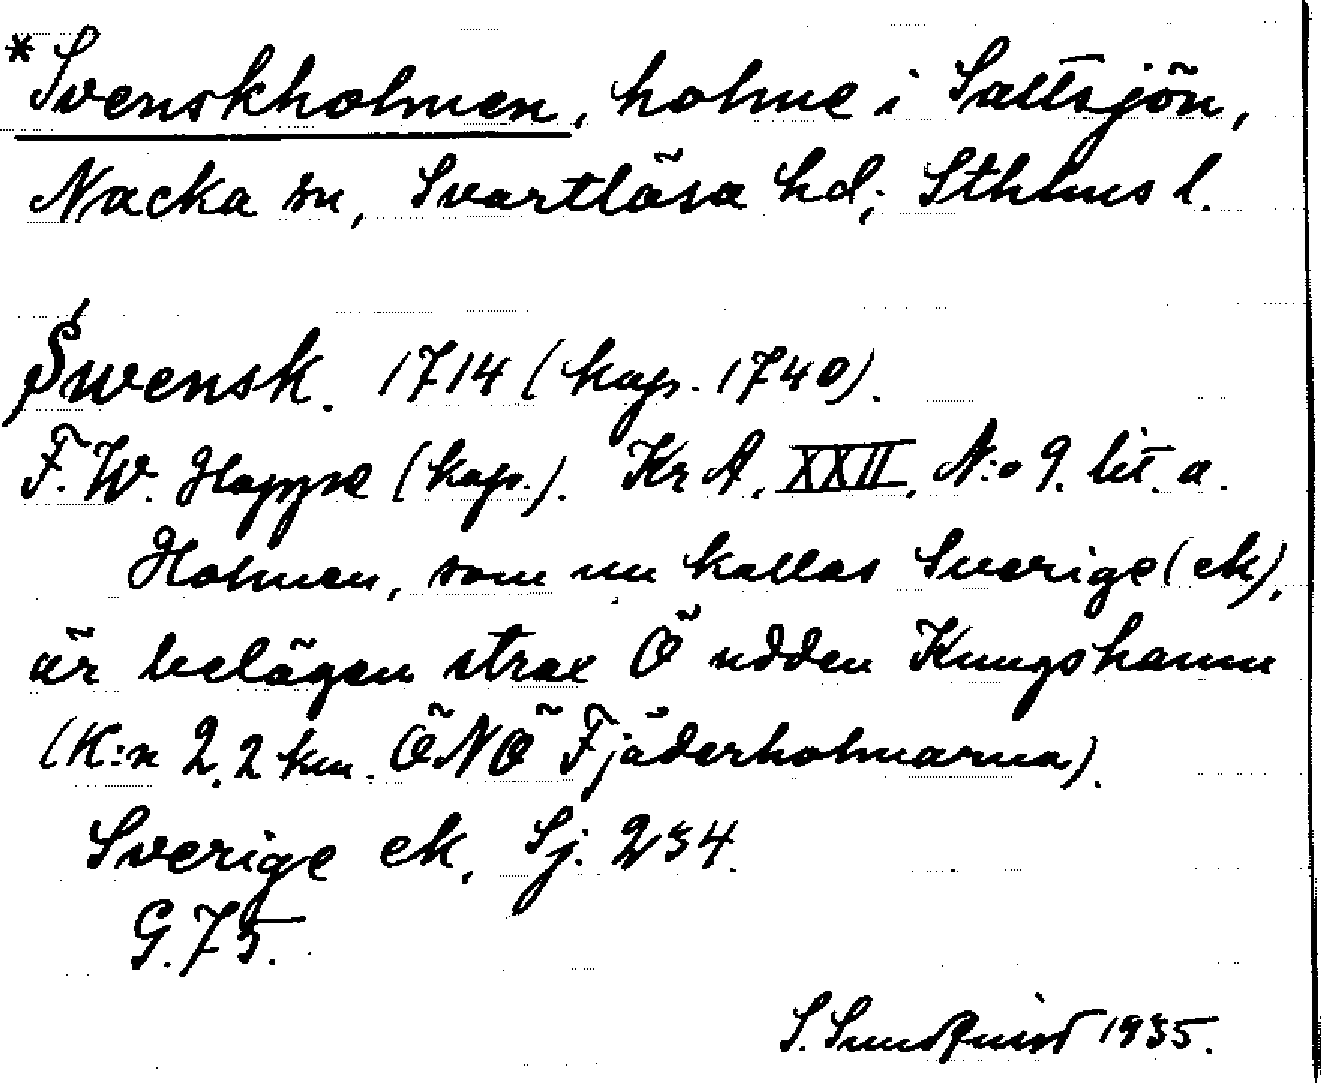 *Svenskholmen, holme i Saltsjön,
Nacka sn, Svartlösa hd, Sthlms l.
Swensk. 1714 (kop. 1740).
F. W. Hoppe (kop.). Kr A, XXII, N:o 9. lit. a.
Holmen, som nu kallas Sverige (ek),
är belägen strax Ö udden Kungshamn
(K:n 2,2 km. ÖNÖ Fjäderholmarna).
Sverige ek, Sj. 234.
G. 75.
S. Sundquist 1935.